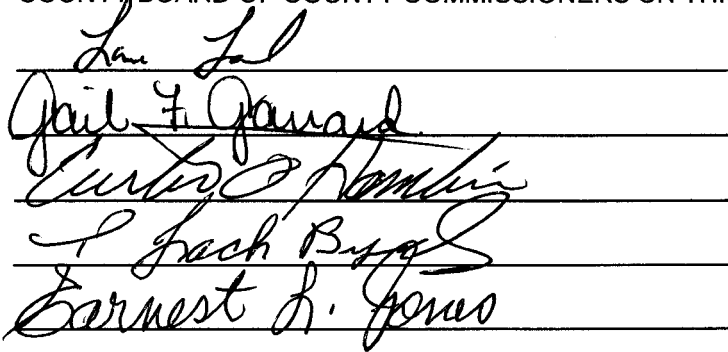 COUNTY BOARD OF COUNTY COMMISSIONERS ON THI
Gail F. Garrard
Curtis D Hamlin
Zach Biggs
Earnest L. Jones